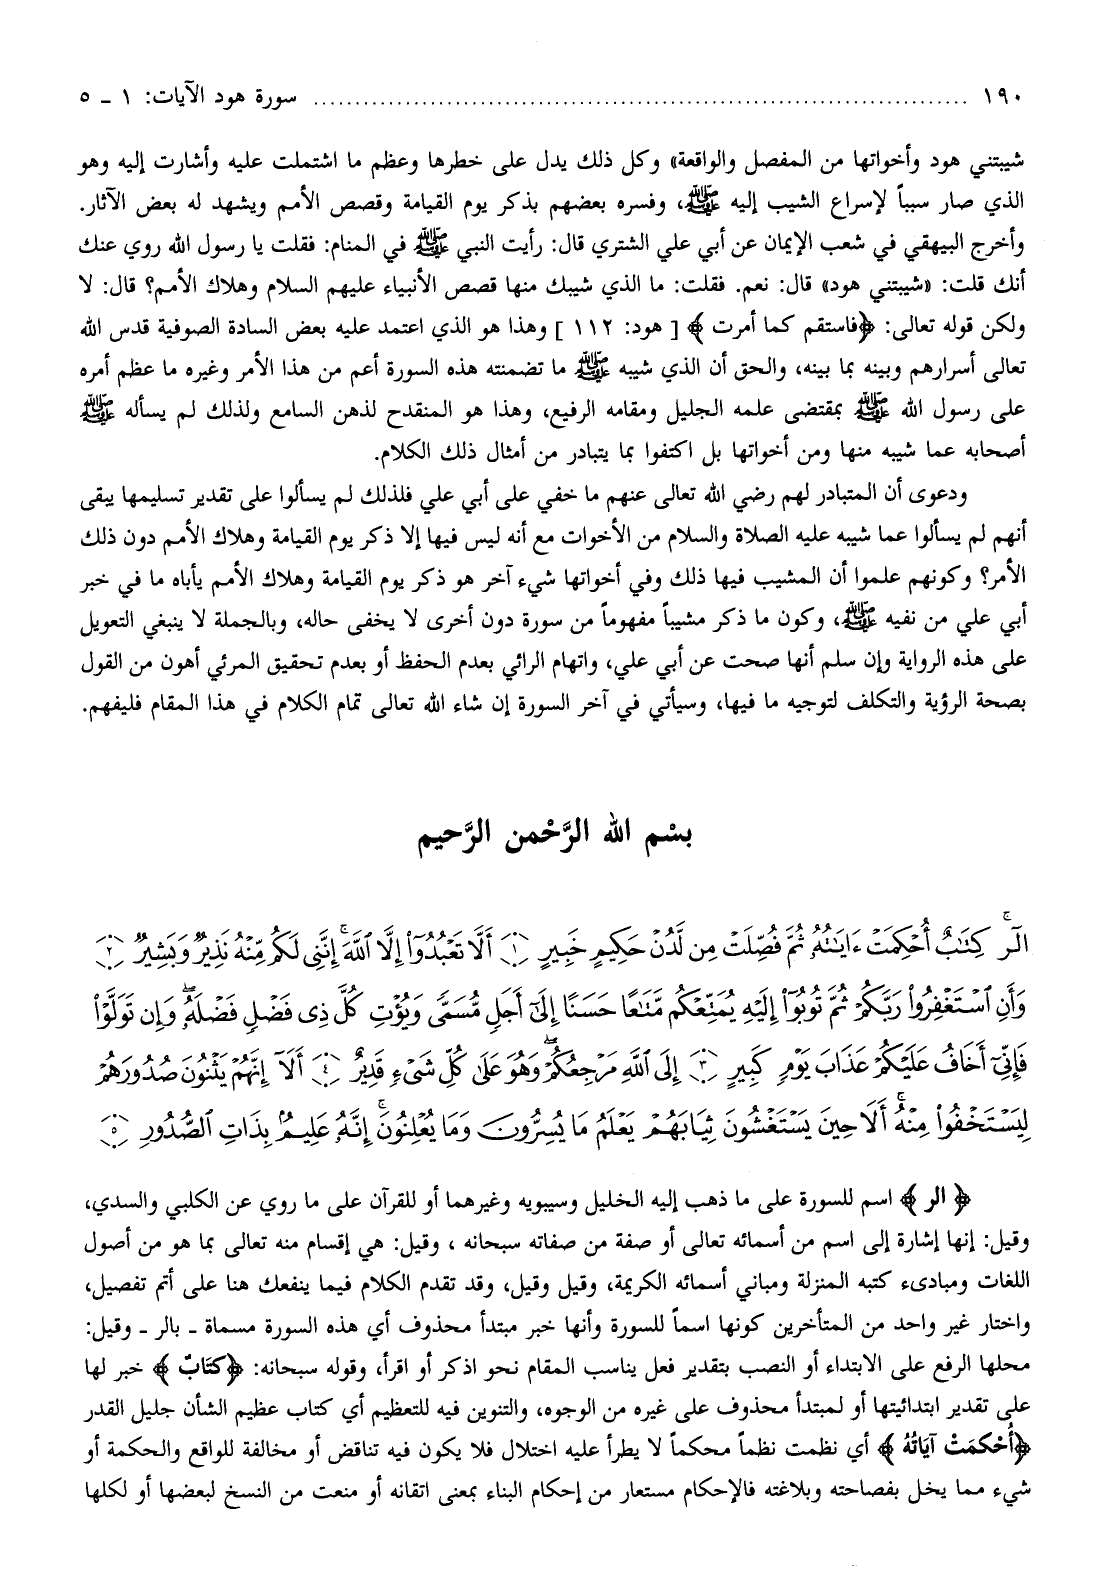 ١٩٠ ........................................................................ سورة هود الآيات: ١ ـ ٥
شيبتني هود وأخواتها من المفصل والواقعة» وكل ذلك يدل على خطرها وعظم ما اشتملت عليه وأشارت إليه وهو
الذي صار سبباً لإسراع الشيب إليه ﷺ، وفسره بعضهم بذكر يوم القيامة وقصص الأمم ويشهد له بعض الآثار.
وأخرج البيهقي في شعب الإيمان عن أبي علي الشتري قال: رأيت النبي ﷺ في المنام: فقلت يا رسول الله روي عنك
أنك قلت: «شيبتني هود» قال: نعم. فقلت: ما الذي شيبك منها قصص الأنبياء عليهم السلام وهلاك الأمم؟ قال: لا
ولكن قوله تعالى: ﴿فاستقم كما أمرت﴾ [ هود: ١١٢ ] وهذا هو الذي اعتمد عليه بعض السادة الصوفية قدس الله
تعالى أسرارهم وبينه بما بينه، والحق أن الذي شيبه ﷺ ما تضمنته هذه السورة أعم من هذا الأمر وغيره ما عظم أمره
على رسول الله ﷺ بمقتضى علمه الجليل ومقامه الرفيع، وهذا هو المنقدح لذهن السامع ولذلك لم يسأله ﷺ
أصحابه عما شيبه منها ومن أخواتها بل اكتفوا بما يتبادر من أمثال ذلك الكلام.
ودعوى أن المتبادر لهم رضي الله تعالى عنهم ما خفي على أبي علي فلذلك لم يسألوا على تقدير تسليمها يبقى
أنهم لم يسألوا عما شيبه عليه الصلاة والسلام من الأخوات مع أنه ليس فيها إلا ذكر يوم القيامة وهلاك الأمم دون ذلك
الأمر؟ وكونهم علموا أن المشيب فيها ذلك وفي أخواتها شيء آخر هو ذكر يوم القيامة وهلاك الأمم يأباه ما في خبر
أبي علي من نفيه ﷺ، وكون ما ذكر مشيباً مفهوماً من سورة دون أخرى لا يخفى حاله، وبالجملة لا ينبغي التعويل
على هذه الرواية وإن سلم أنها صحت عن أبي علي، واتهام الرائي بعدم الحفظ أو بعدم تحقيق المرئي أهون من القول
بصحة الرؤية والتكلف لتوجيه ما فيها، وسيأتي في آخر السورة إن شاء الله تعالى تمام الكلام في هذا المقام فليفهم.
بسْم الله الرَّحْمن الرَّحيم
الٓرۚ كِتَٰبٌ أُحْكِمَتْ ءَايَٰتُهُۥ ثُمَّ فُصِّلَتْ مِن لَّدُنْ حَكِيمٍ خَبِيرٍ ١ أَلَّا تَعْبُدُوٓا۟ إِلَّا ٱللَّهَۚ إِنَّنِى لَكُم مِّنْهُ نَذِيرٌ وَبَشِيرٌ ٢
وَأَنِ ٱسْتَغْفِرُوا۟ رَبَّكُمْ ثُمَّ تُوبُوٓا۟ إِلَيْهِ يُمَتِّعْكُم مَّتَٰعًا حَسَنًا إِلَىٰٓ أَجَلٍ مُّسَمًّى وَيُؤْتِ كُلَّ ذِى فَضْلٍ فَضْلَهُۥۖ وَإِن تَوَلَّوْا۟
فَإِنِّىٓ أَخَافُ عَلَيْكُمْ عَذَابَ يَوْمٍ كَبِيرٍ ٣ إِلَى ٱللَّهِ مَرْجِعُكُمْۖ وَهُوَ عَلَىٰ كُلِّ شَىْءٍ قَدِيرٌ ٤ أَلَآ إِنَّهُمْ يَثْنُونَ صُدُورَهُمْ
لِيَسْتَخْفُوا۟ مِنْهُۚ أَلَا حِينَ يَسْتَغْشُونَ ثِيَابَهُمْ يَعْلَمُ مَا يُسِرُّونَ وَمَا يُعْلِنُونَۚ إِنَّهُۥ عَلِيمٌۢ بِذَاتِ ٱلصُّدُورِ ٥
﴿الر﴾ اسم للسورة على ما ذهب إليه الخليل وسيبويه وغيرهما أو للقرآن على ما روي عن الكلبي والسدي،
وقيل: إنها إشارة إلى اسم من أسمائه تعالى أو صفة من صفاته سبحانه ، وقيل: هي إقسام منه تعالى بما هو من أصول
اللغات ومبادىء كتبه المنزلة ومباني أسمائه الكريمة، وقيل وقيل، وقد تقدم الكلام فيما ينفعك هنا على أتم تفصيل،
واختار غير واحد من المتأخرين كونها اسماً للسورة وأنها خبر مبتدأ محذوف أي هذه السورة مسماة ـ بالر ـ وقيل:
محلها الرفع على الابتداء أو النصب بتقدير فعل يناسب المقام نحو اذكر أو اقرأ، وقوله سبحانه: ﴿كتَابٌ﴾ خبر لها
على تقدير ابتدائيتها أو لمبتدأ محذوف على غيره من الوجوه، والتنوين فيه للتعظيم أي كتاب عظيم الشأن جليل القدر
﴿أُحْكمَتْ آيَاتُهُ﴾ أي نظمت نظماً محكماً لا يطرأ عليه اختلال فلا يكون فيه تناقض أو مخالفة للواقع والحكمة أو
شيء مما يخل بفصاحته وبلاغته فالإحكام مستعار من إحكام البناء بمعنى اتقانه أو منعت من النسخ لبعضها أو لكلها